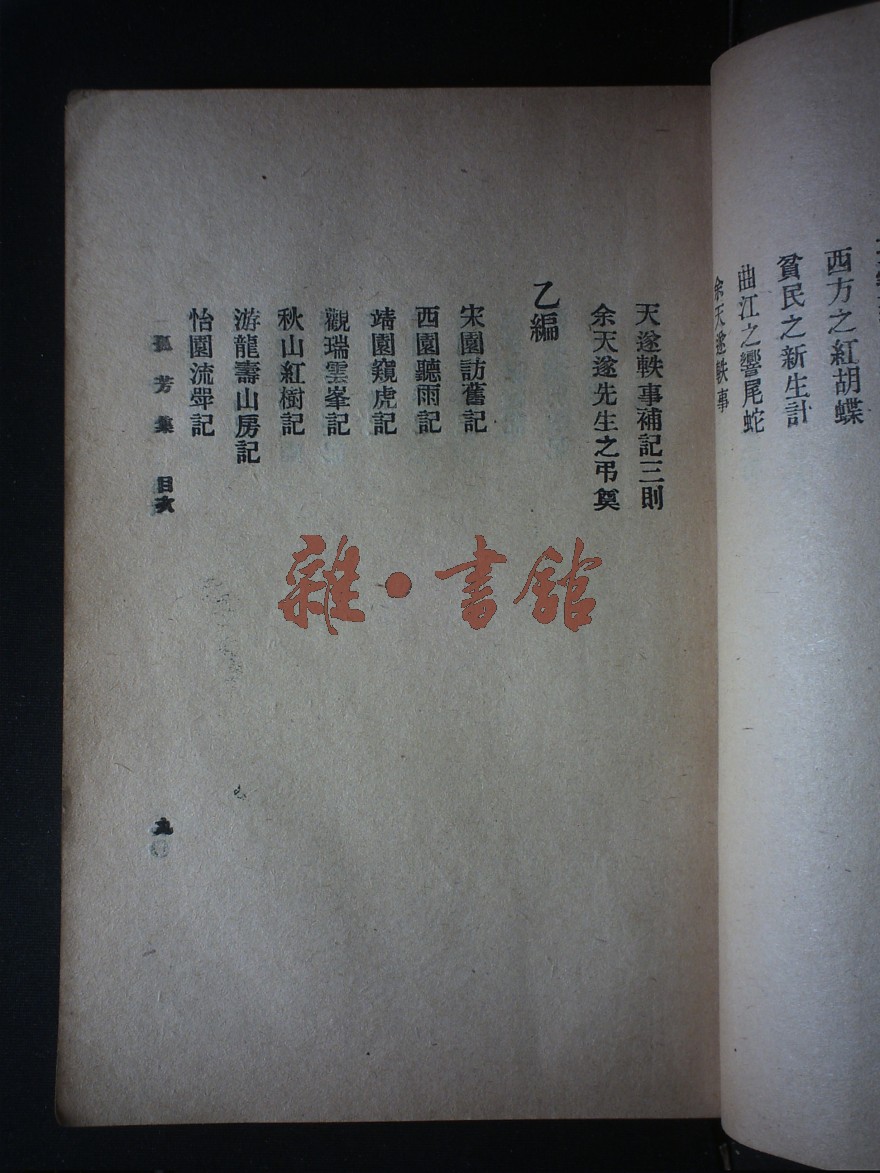 西方之紅胡蝶
貧民之新生計
曲江之響尾蛇
余天遂軼事
天遂軼事補記三則
余天遂先生之弔奠
乙編
宋園訪舊記
西園聽雨記
靖園窺虎記
觀瑞雲峯記
秋山紅樹記
游龍壽山房記
怡園流聲記
孤芳集 目次
九
雜·書館